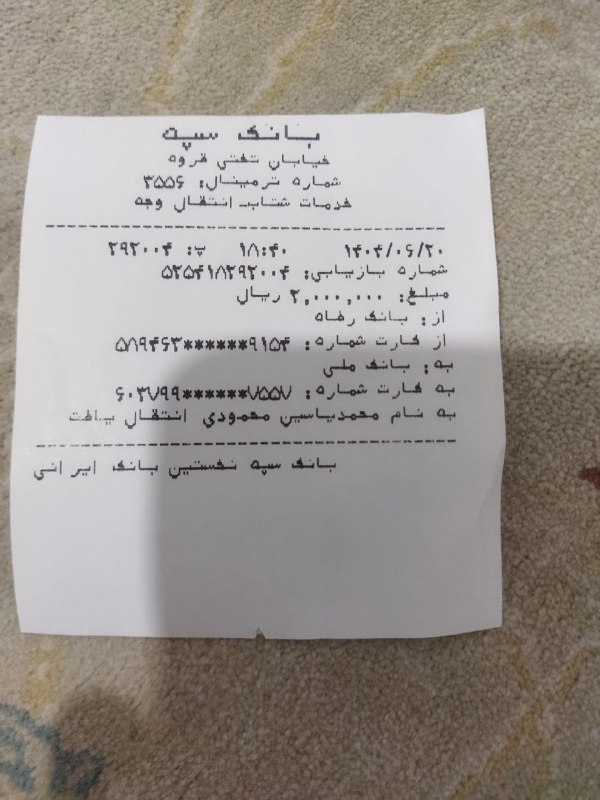 بانک سپه
خیابان تفتی قروه
شماره ترمینال: ۳۵۵۶
خدمات شتاب- انتقال وجه
۱۴۰۴/۰۶/۲۰ ۱۸:۴۰ پ: ۲۹۲۰۰۴
شماره بازیابی: ۵۲۵۴۱۸۲۹۲۰۰۴
مبلغ: ۲,۰۰۰,۰۰۰ ریال
از: بانک رفاه
از کارت شماره: ۵۸۹۴۶۳******۹۱۵۴
به: بانک ملی
به کارت شماره: ۶۰۳۷۹۹******۷۵۵۷
به نام محمدیاسین محمودی انتقال یافت
بانک سپه نخستین بانک ایرانی